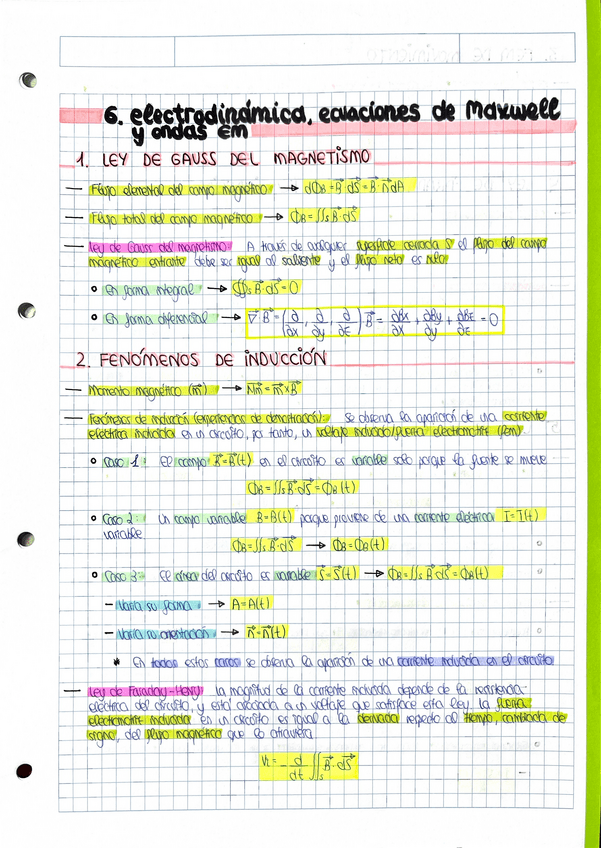 6. electrodinámica, ecuaciones de Maxwell
y ondas EM
1. LEY DE GAUSS DEL MAGNETISMO
— Flujo elemental del campo magnético → dΦB = B⃗ dS⃗ = B⃗·n⃗ dA
— Flujo total del campo magnético → ΦB = ∬s B⃗·dS⃗
— Ley de Gauss del magnetismo: A través de cualquier superficie cerrada S el flujo del campo
magnético entrante debe ser igual al saliente y el flujo neto es nulo
o En forma integral → ∯s B⃗·dS⃗ = 0
o En forma diferencial → ∇⃗·B⃗ = (∂/∂x, ∂/∂y, ∂/∂z) B⃗ = ∂Bx/∂x + ∂By/∂y + ∂Bz/∂z = 0
2. FENÓMENOS DE INDUCCIÓN
— Momento magnético (m⃗) → Nm = m⃗ × B⃗
— Fenómenos de inducción (experiencias de demostración): Se observa la aparición de una corriente
eléctrica inducida en un circuito, por tanto, un voltaje inducido/fuerza electromotriz (fem).
o Caso 1: El campo B⃗ = B⃗(t) en el circuito es variable solo porque la fuente se mueve
ΦB = ∬s B⃗·dS⃗ = ΦB(t)
o Caso 2: Un campo variable B = B(t) porque proviene de una corriente eléctrica I = I(t)
variable
ΦB = ∬s B⃗·dS⃗ → ΦB = ΦB(t)
o Caso 3: El área del circuito es variable S⃗ = S⃗(t) → ΦB = ∬s B⃗ dS⃗ = ΦB(t)
– Varía su forma → A = A(t)
– Varía su orientación → n⃗ = n⃗(t)
* En todos estos casos se observa la aparición de una corriente inducida en el circuito
— Ley de Faraday-Henry: la magnitud de la corriente inducida depende de la resistencia
eléctrica del circuito, y está asociada a un voltaje que satisface esta ley. La fuerza
electromotriz inducida en un circuito es igual a la derivada respecto al tiempo, cambiada de
signo, del flujo magnético que lo atraviesa
Vi = - d/dt ∬s B⃗·dS⃗